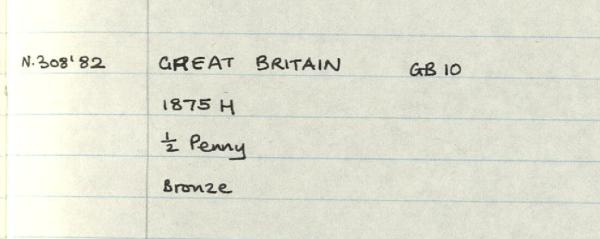 N.308'82 GREAT BRITAIN GB 10
1875 H
½ Penny
Bronze